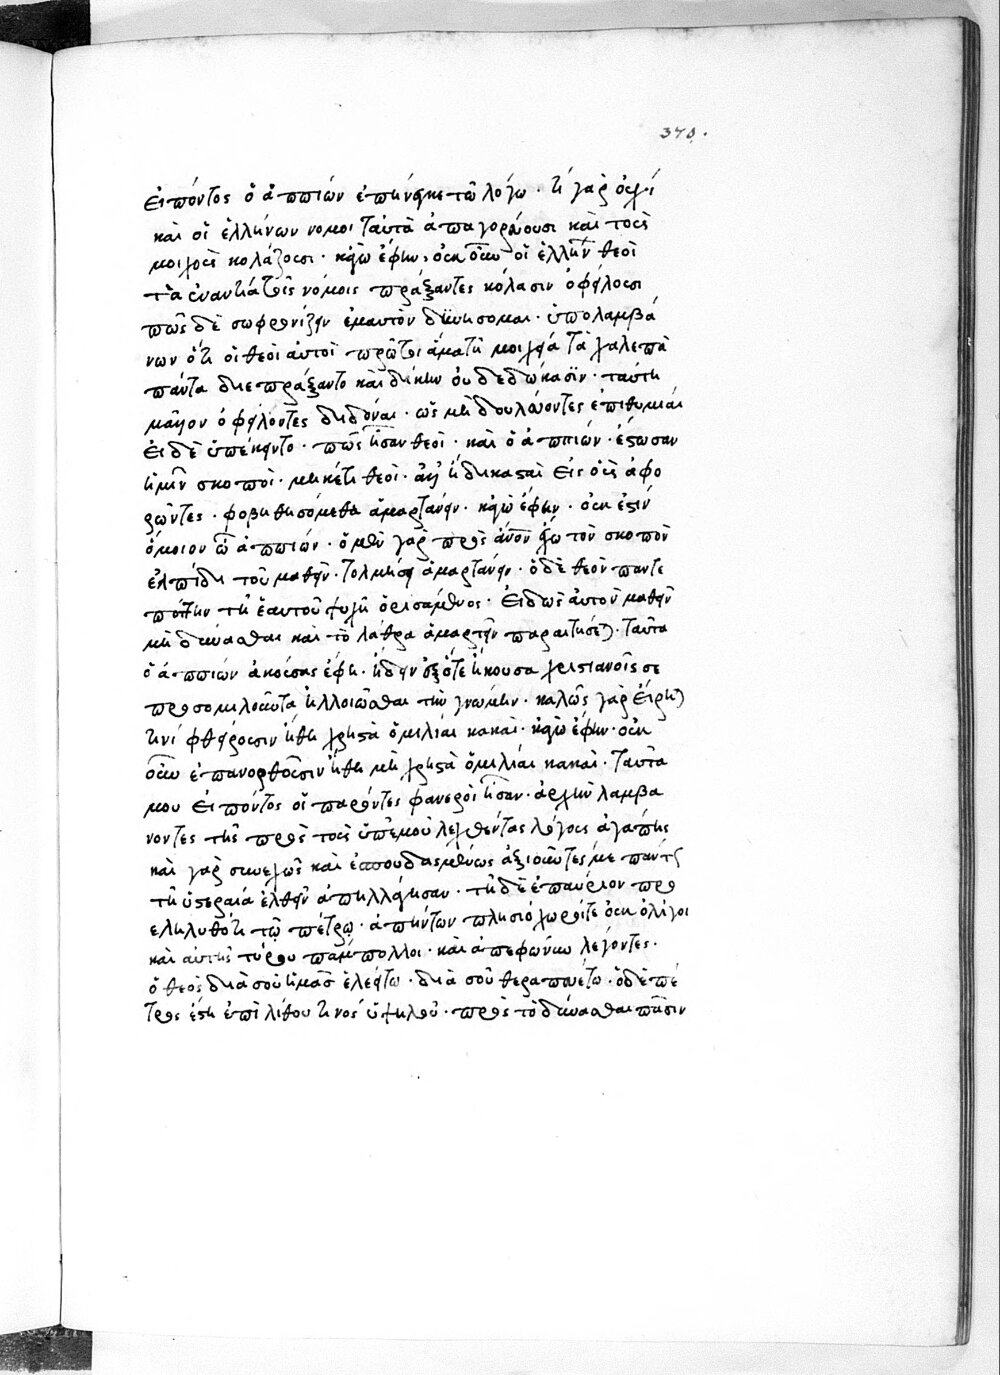 370.
εἰπόντος ὁ ἀππιὼν ἐπήνεγκε τῶ λόγω· τί γὰρ οὐχὶ
καὶ οἱ ἑλλήνων νόμοι ταῦτα ἀπαγορεύουσι καὶ τοὺς
μοιχοὺς κολάζουσι· κἀγὼ ἔφην, οὐκοῦν οἱ ἑλλήνων θεοὶ
τὰ ἐναντία τοῖς νόμοις πράξαντες κόλασιν ὀφείλουσι
πῶς δὲ σωφρονίζειν ἐμαυτὸν δυνήσομαι· ὑπολαμβά
νων ὅτι οἱ θεοὶ αὐτοὶ πρῶτοι ἅμα τῆ μοιχεία τὰ χαλεπὰ
πάντα διεπράξαντο καὶ δίκην οὐ δεδώκασιν· ταύτη
μᾶλλον ὀφείλοντες διδόναι· ὡς μὴ δουλεύοντες ἐπιθυμίαι
εἰ δὲ ὑπέκειντο· πῶς ἦσαν θεοὶ· καὶ ὁ ἀππιών· ἔστωσαν
ἡμῖν σκοποὶ· μηκέτι θεοὶ· ἀλλ' οἱ δικασταὶ εἰς οὓς ἀφο
ρῶντες· φοβηθησόμεθα ἁμαρτάνειν· κἀγὼ ἔφην· οὐκ ἔστιν
ὅμοιον ὦ ἀππιών· ὁ μὲν γὰρ πρὸς ἄνον ἔχω τὸν σκοπὸν
ἐλπίδι τοῦ μαθεῖν· τολμήσει ἁμαρτάνειν· ὁ δὲ θεὸν παντε
πόπτην τῆ ἑαυτοῦ ψυχῆ ὁρισάμενος· εἰδὼς αὐτὸν λαθεῖν
μὴ δύνασθαι καὶ τὸ λάθρα ἁμαρτεῖν παραιτήσεται· ταῦτα
ὁ ἀππιὼν ἀκούσας ἔφη· ἤδειν ἐξ ὅτε ἤκουσα χριστιανοῖς σε
προσομιλοῦντα ἠλλοιῶσθαι τὴν γνώμην· καλῶς γὰρ εἴρηται
τινί φθείρουσιν ἤθη χρηστὰ ὁμιλίαι κακαὶ· κἀγὼ ἔφην· οὐκ
οὖν ἐπανορθοῦσιν ἤθη μὴ χρηστὰ ὁμιλίαι κακαὶ· ταῦτα
μου εἰπόντος οἱ παρόντες φανεροὶ ἦσαν· ἀρχὴν λαμβα
νοντες τῆς πρὸς τοὺς ὑπ' ἐμοῦ λεχθέντας λόγους ἀγάπης
καὶ γὰρ συνεχῶς καὶ ἐσπουδασμένως ἀξιοῦντες με πάντες
τῆ ὑστεραία ἐλθεῖν ἀπηλλάγησαν· τῆ δὲ ἐπαύριον προ
εληλυθότι τῷ πέτρῳ· ἀπήντων πλησιόχωροί τε οὐκ ὀλίγοι
καὶ αὐτῆς τύρου πάμπολλοι· καὶ ἀπεφώνουν λέγοντες·
ὁ θεὸς διὰ σοῦ ἡμᾶς ἐλεείτω· διὰ σοῦ θεραπευέτω· ὁ δὲ πέ
τρος ἔστη ἐπὶ λίθου τινός ὑψηλοῦ· πρὸς τὸ δύνασθαι πᾶσιν